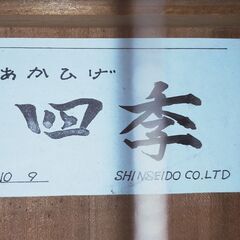 あかひげ
四季
10 9
SHINSEIDO CO.LTD